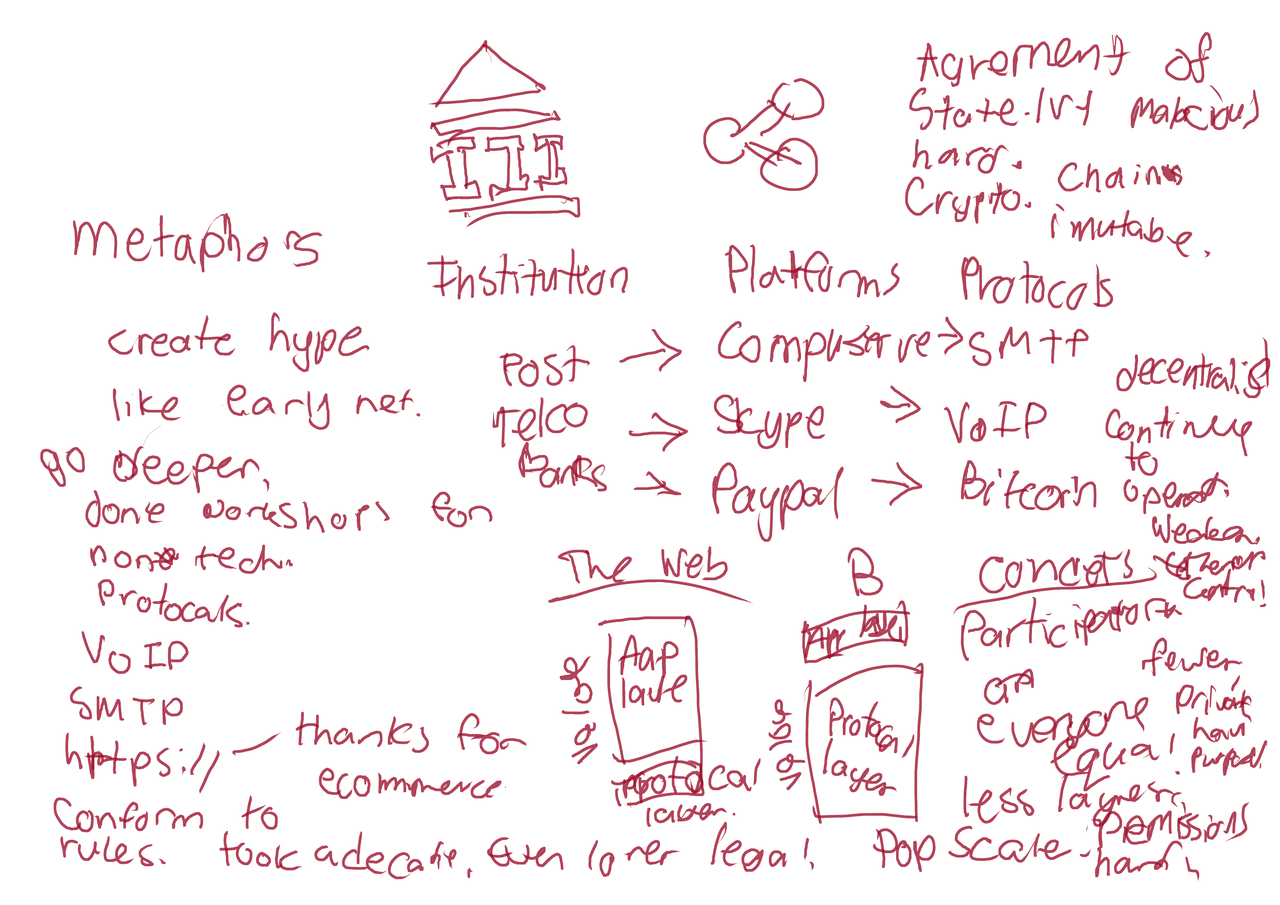 Agrement of
State. malicious
hard. Chains
Crypto. imutable.
metaphors
create hype
like early net.
go deeper,
done workshops for
non tech.
Protocals.
VOIP
SMTP
https://
thanks for
ecommerce
Conform to
rules. took a decade, even lorer legal.
Institution
Platforms
Protocals
Post → Compuserve → SMTP
Telco → Skype → VoIP
Banks → Paypal → Bitcoin
decentralisd
Continue
to
operat.
weaken
control
The Web
App
value
protocal
B
value
Protocal
layer
Concets
fewer
or
everyone
equal
private
have
less layers.
Pop Scale.
Pemissions
hard